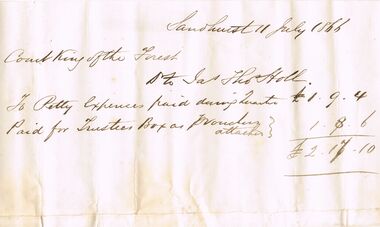 Sandhurst 11 July 1866
Court King of the Forest
Dr to Jas Thos Holl.
To Petty Expences paid during Quarter £1. 9. 4
Paid for Trustees Box as pr voucher attached } 1. 8. 6
£2. 17. 10